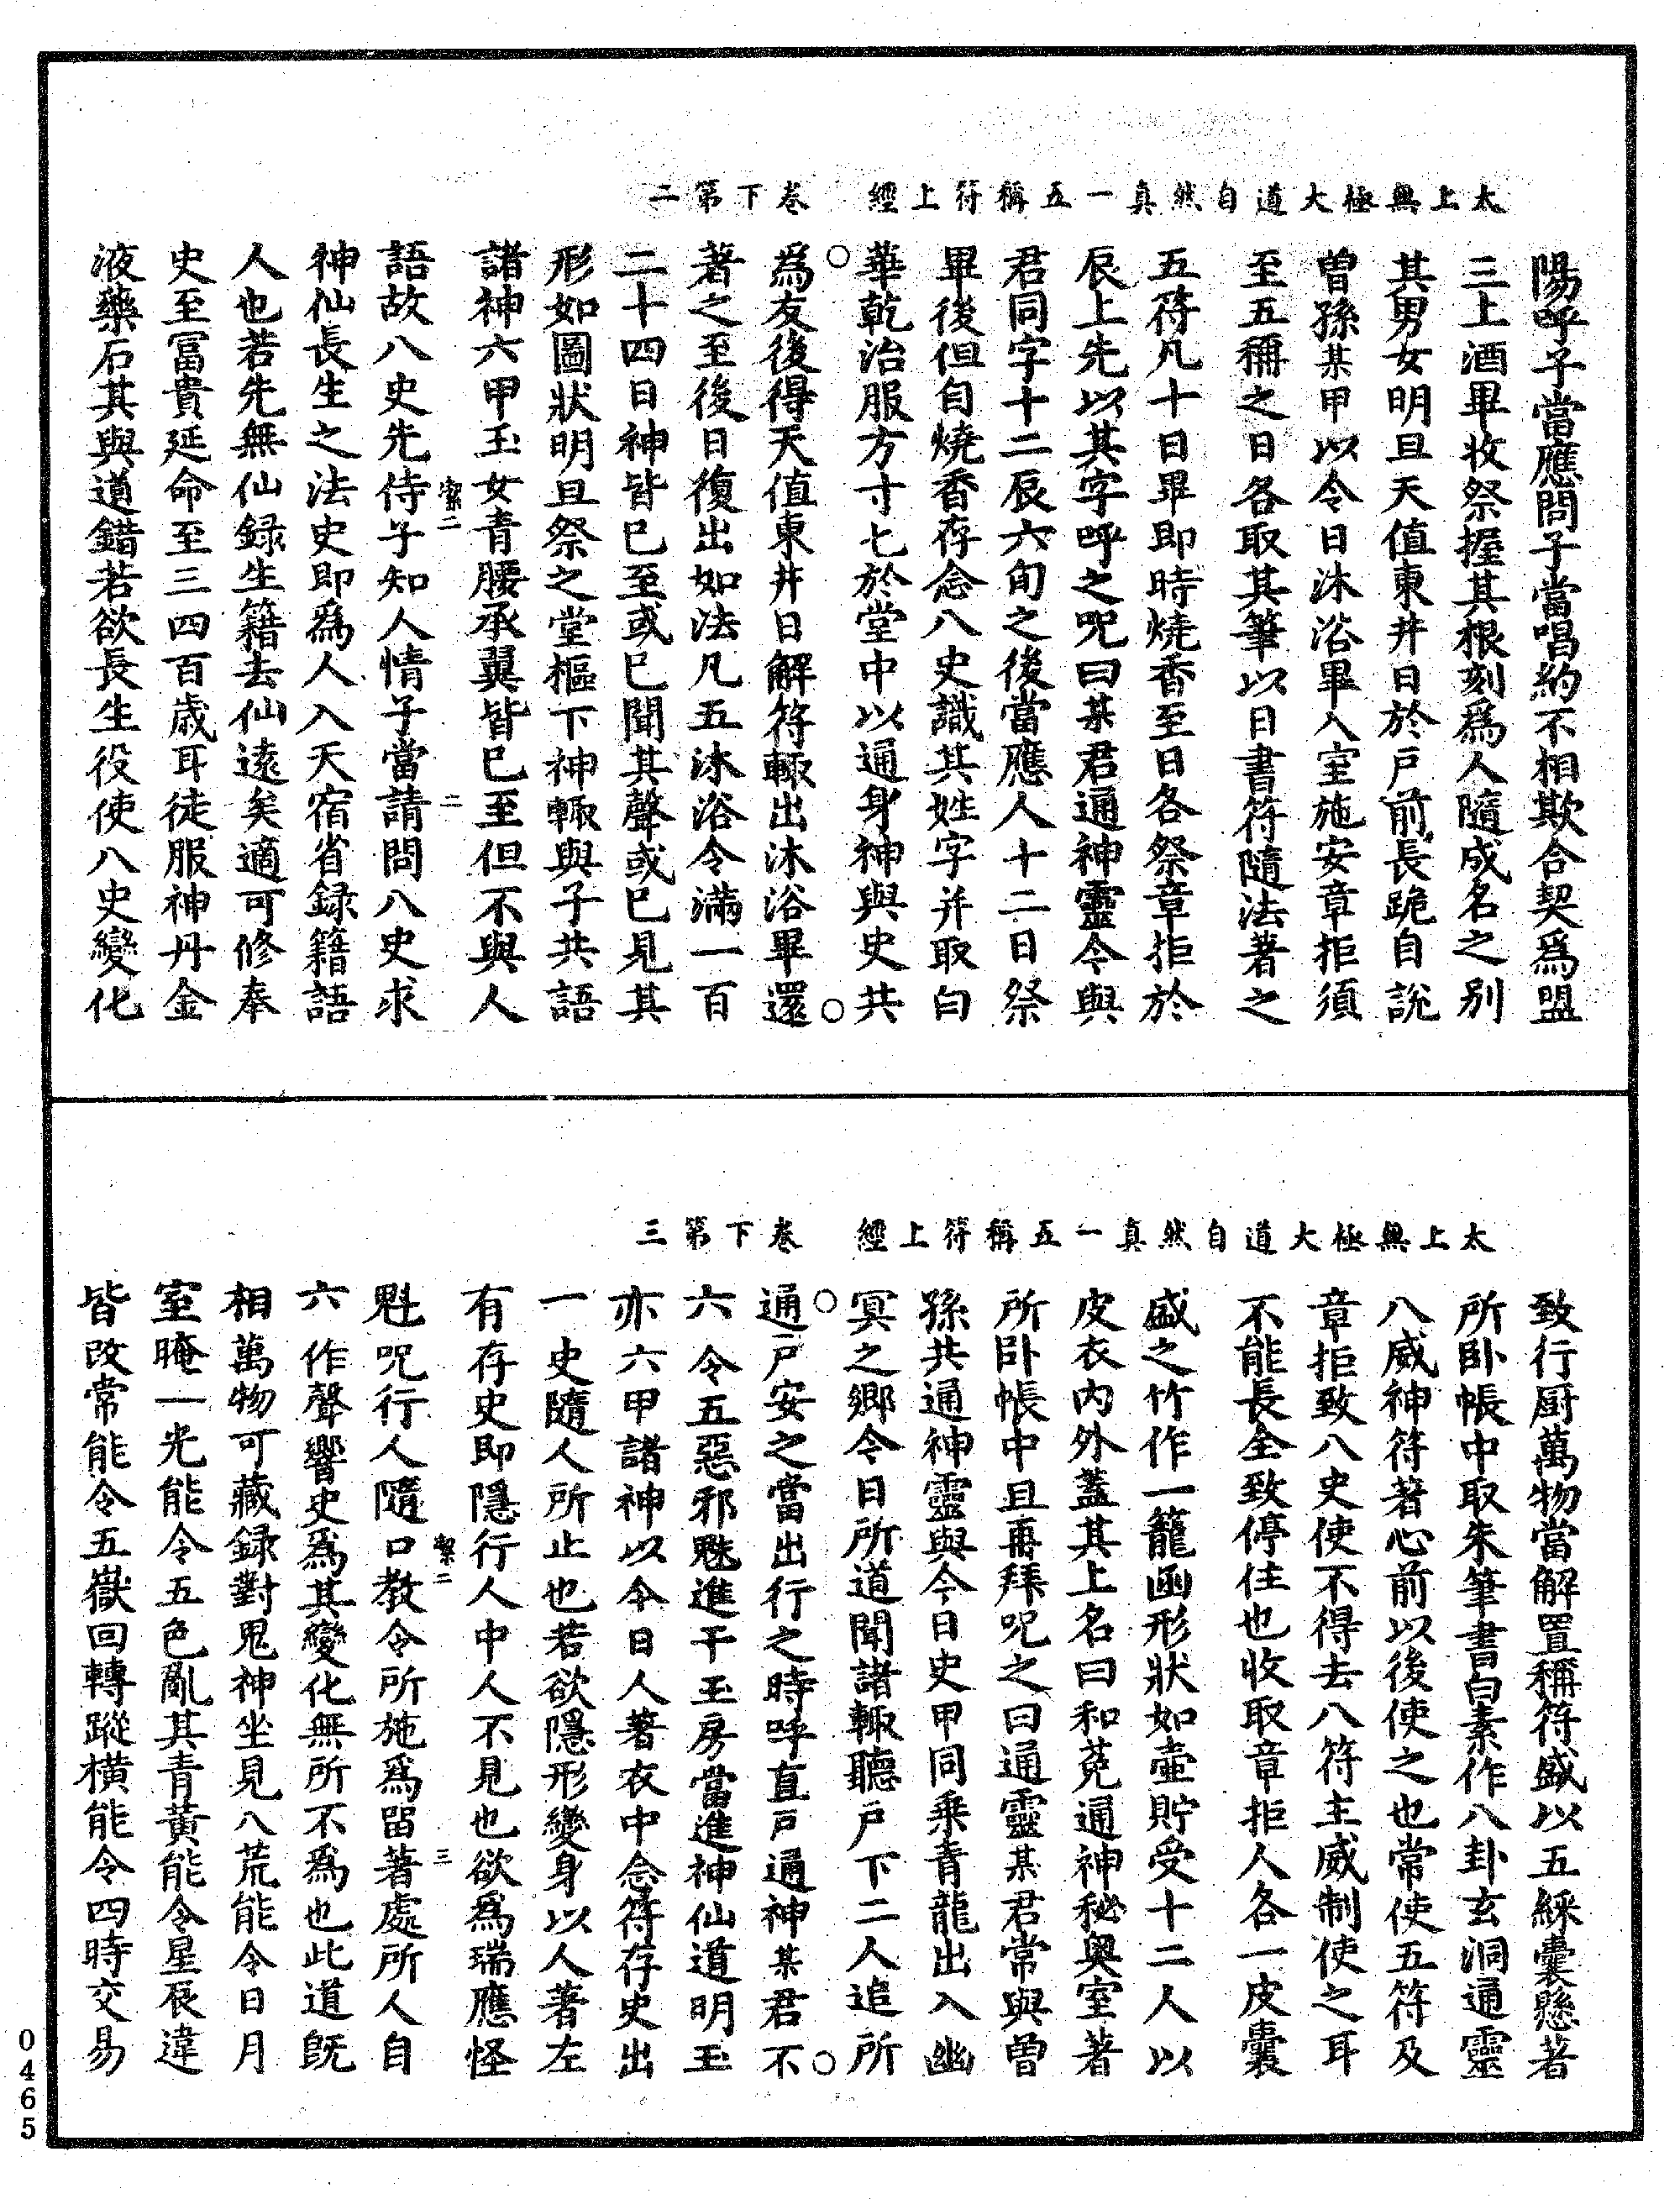 太上無極大道自然真一五稱符上經　卷下第二
陽呼子當應問子當唱約不相欺合契爲盟
三上酒畢收祭握其根刻爲人隨成名之别
其男女明旦天值東井日於户前長跪自說
曽孫某甲以令日沐浴畢入室施安章拒須
至五稱之日各取其筆以日書符隨法著之
五符凡十日畢即時燒香至日各祭章拒於
辰上先以其字呼之呪曰某君通神靈令與
君同字十二辰六旬之後當應人十二日祭
畢後但自燒香存念八史識其姓字并取白
華乾治服方寸七於堂中以通身神與史共
爲友後得天值東井日解符輙出沐浴畢還
著之至後日復出如法凡五沐浴令滿一百
二十四日神皆已至或已聞其聲或已見其
形如圖狀明旦祭之堂樞下神輙與子共語
諸神六甲玉女青腰承翼皆已至但不與人
語故八史先侍子知人情子當請問八史求
神仙長生之法史即爲人入天宿省録籍語
人也若先無仙録生籍去仙遠矣適可修奉
史至冨貴延命至三四百歲耳徒服神丹金
液藥石其與道錯若欲長生役使八史變化
太上無極大道自然真一五稱符上經　卷下第三
致行厨萬物當解置稱符盛以五綵囊懸著
所卧帳中取朱筆書白素作八卦玄洞通靈
八威神符著心前以後使之也常使五符及
章拒致八史使不得去八符主威制使之耳
不能長全致停住也收取章拒人各一皮囊
盛之竹作一籠函形狀如壷貯受十二人以
皮衣内外蓋其上名曰和茺通神秘奥室著
所卧帳中且再拜呪之曰通靈某君常與曽
孫共通神靈與今日史甲同乗青龍出入幽
冥之鄉令日所道聞諸輙聽户下二人追所
通户安之當出行之時呼直户通神某君不
六令五惡邪魅進干玉房當進神仙道明玉
亦六甲諸神以令日人著衣中念符存史出
一史隨人所止也若欲隱形變身以人著左
有存史即隱行人中人不見也欲爲瑞應怪
魁呪行人隨口教令所施爲留著處所人自
六作聲響史爲其變化無所不爲也此道旣
相萬物可藏録對鬼神坐見八荒能令日月
室晻一光能令五色亂其青黃能令星辰違
皆改常能令五嶽回轉蹤横能令四時交易
0465